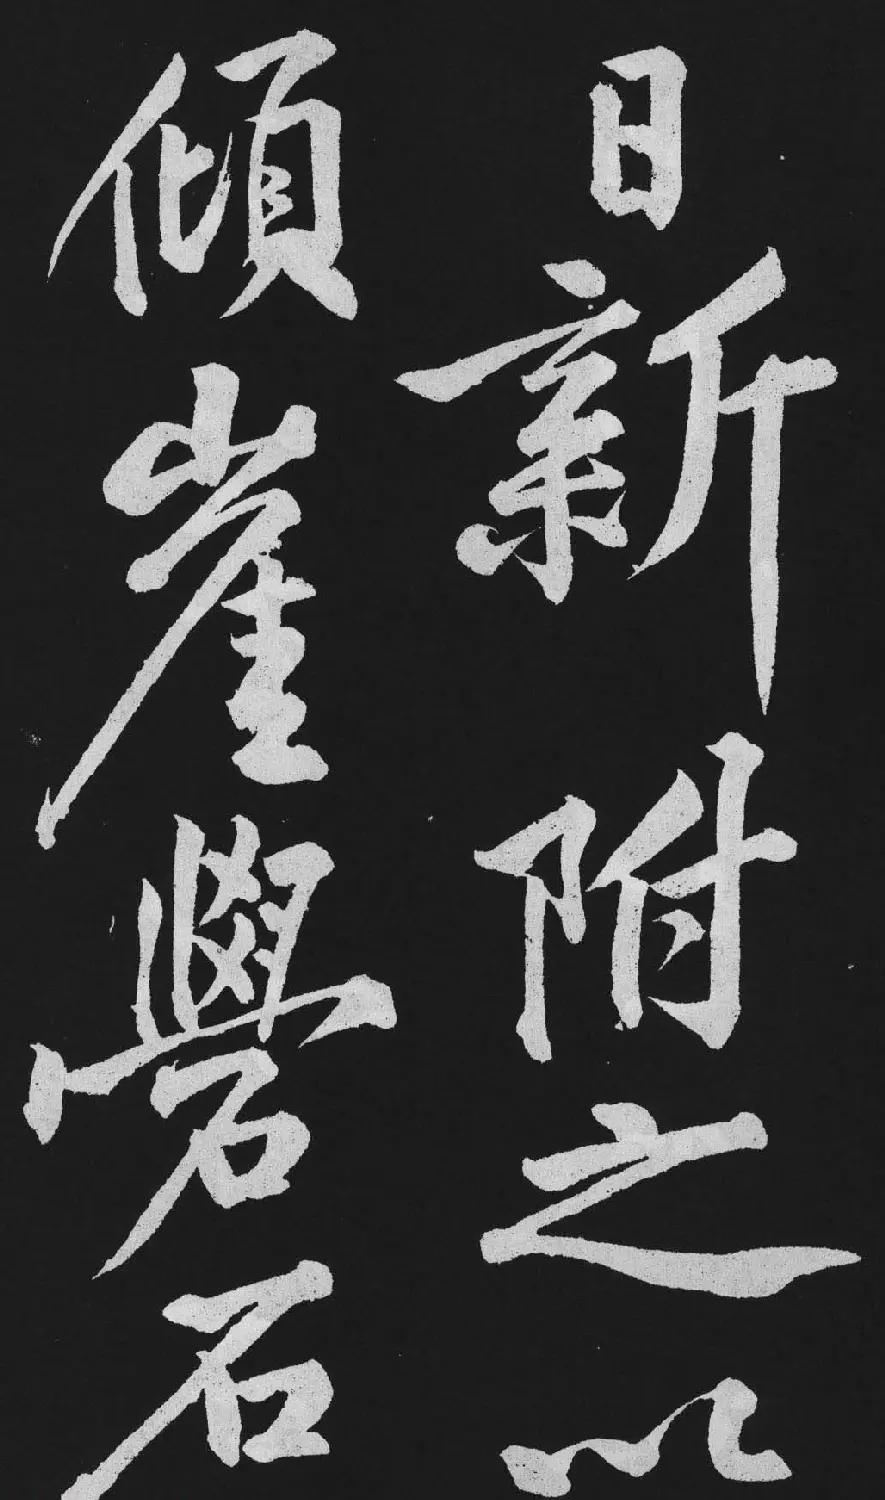 日新附之以
傾崖礐石